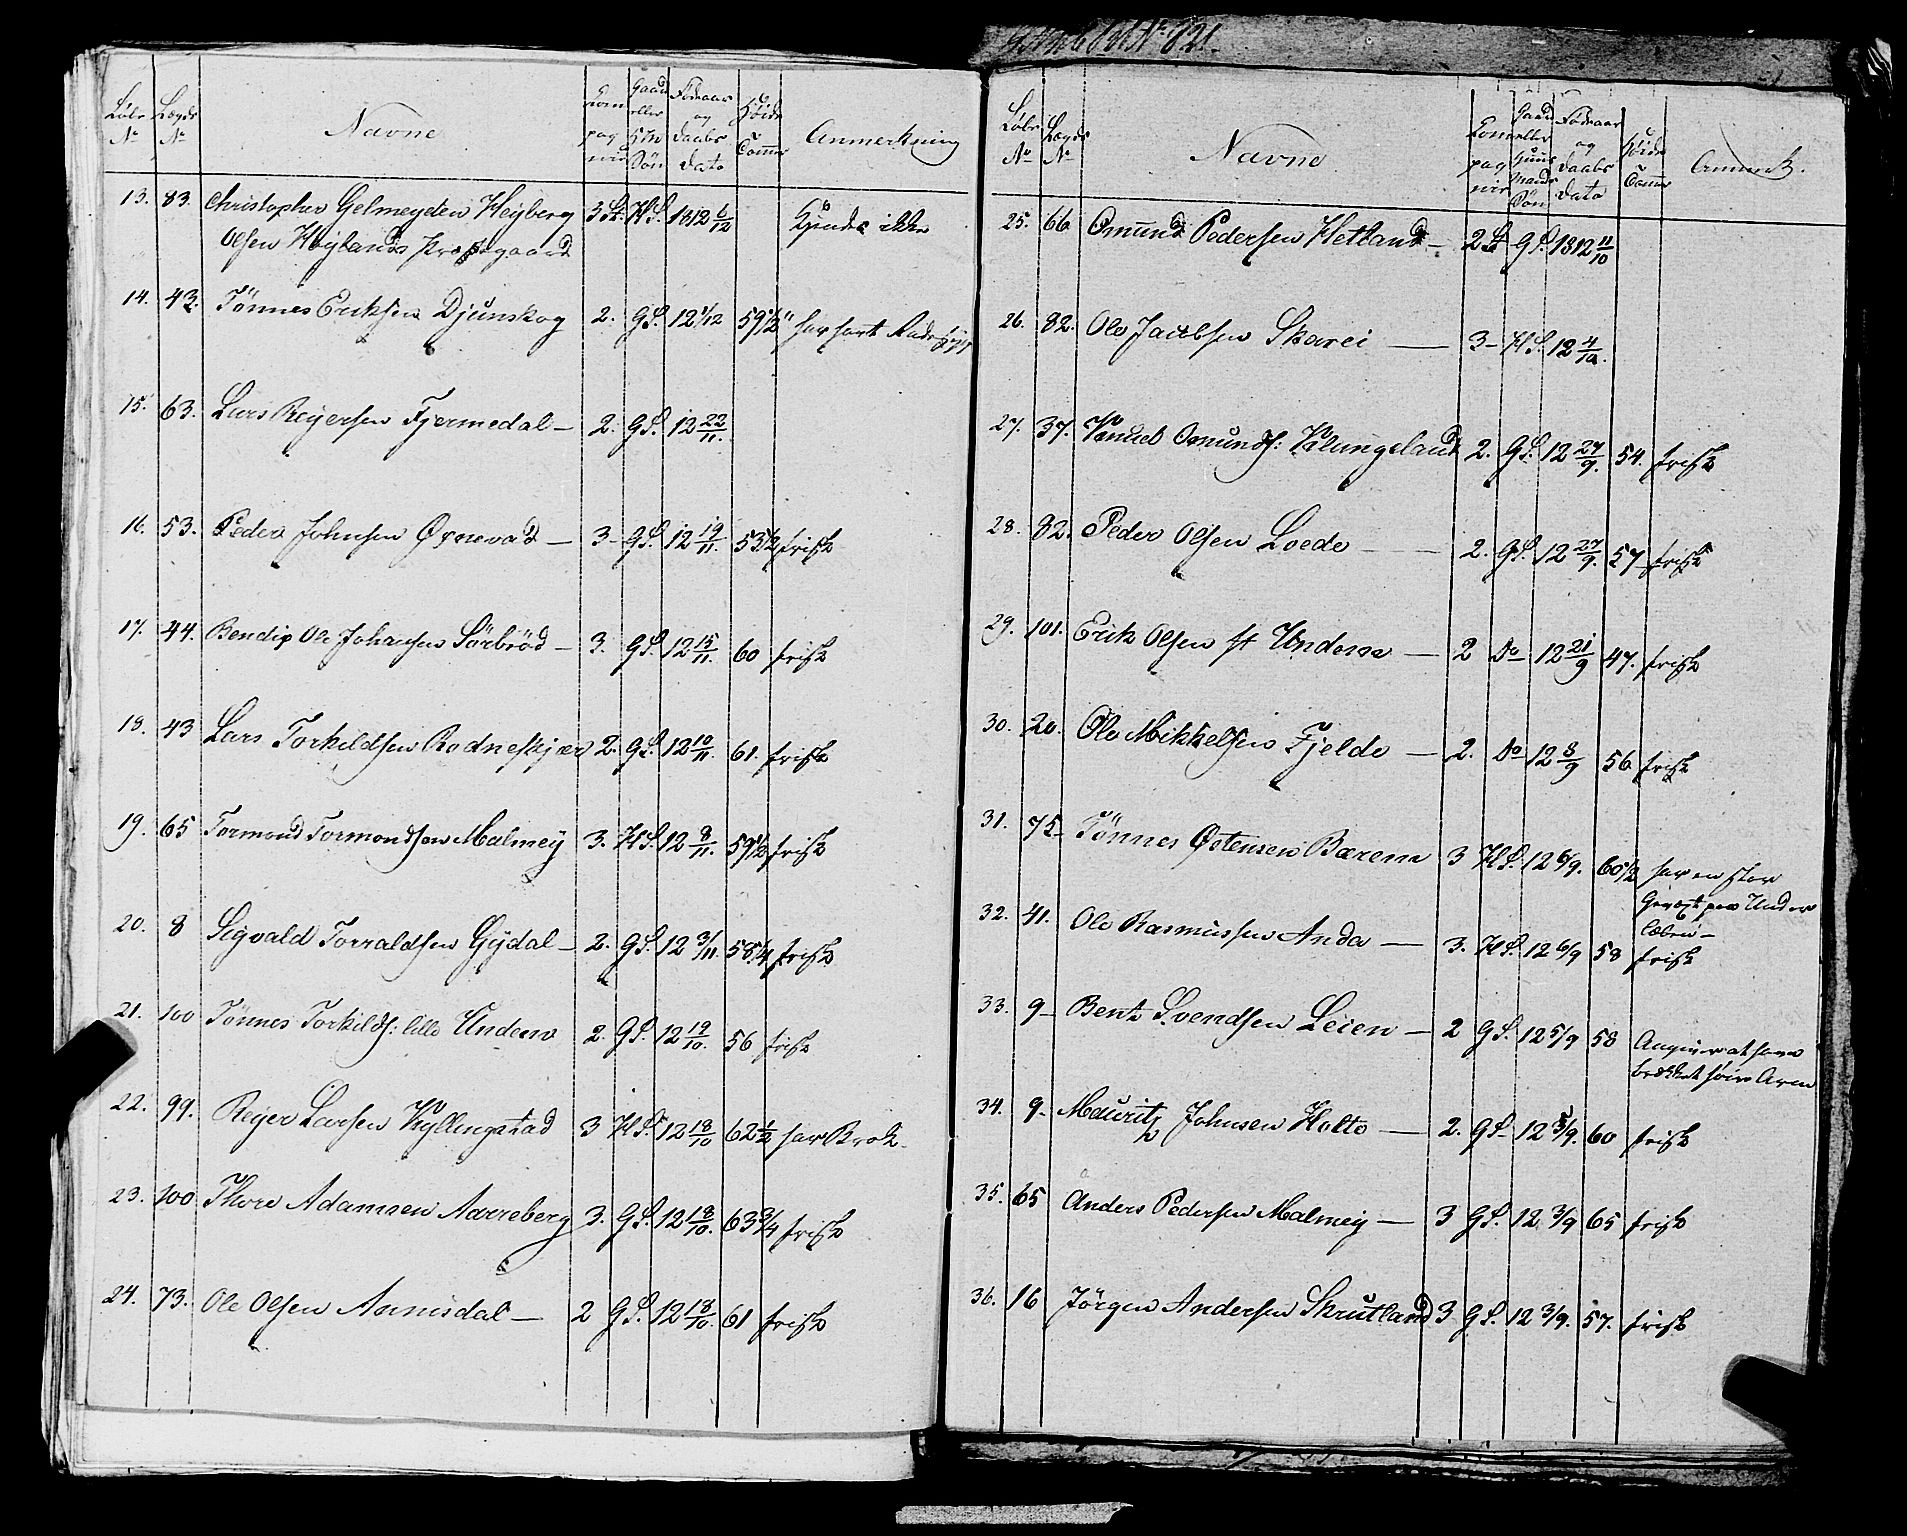 Løbe No Lægds No Navne Compagnie Gaard eller Hm Søn Fødeaar og Daabs Dato Høide Tommer Anmerkning
13. 83. Christopher Gelmeyden Heyberg 3die H S. 1812 6/12 Kjendes ikke
Olsen Høylands Præstgaard
14. 43. Tönnes Eriksen Djunskog 2. G S. 12 1/12 59 1/2" har havt
15. 63. Lars Reyersen Fjermedal — 2. G S. 12 22/11.
16. 53. Peder Johnsen Øxnevad — 3 - G S. 12 19/11. 53 1/2 frisk
17. 44. Bendix Ole Johansen Sörbröd — 3. G S. 12 15/11. 60 frisk
18. 43 Lars Torkildsen Rodneskjær 2. G S. 12 10/11. 61. frisk
19. 65 Tormond Tormondsen Malmey 3. H S. 12 8/11. 59 1/2 frisk
20. 8 Sigvald Torraldsen Gydal — 2. G S. 12 3/11. 58 1/4 frisk
21. 100 Tönnes Torkilds: lille Undem 2. G S. 12 19/10. 56 frisk
22. 99. Reyer Larsen Kyllingstad 3 H S. 12 18/10 62 1/2 har Brok.
23. 100 Thore Adamsen Aarreberg 3. G S. 12 18/10. 63 3/4 frisk
24. 73. Ole Olsen Aamisdal — 2 G S. 12 18/10. 61 frisk
Løbe No Lægds No Navne Compagnie Gaard eller Huus Mands Søn Fødeaar og Daabs Dato Høide Tommer Anmerk.
25. 66 Omund Pedersen Hetland — 2d G S. 1812 11/10
26. 82. Ole Jacobsen Skarei — 3 - H S. 12 4/10.
27. 37. Omunds: Klungeland 2. G S. 12 27/9. 54. frisk
28. 82. Peder Olsen Loede — — 2. G S. 12 27/9. 57 frisk
29. 101. Erik Olsen st Undem — 2 Do 12 21/9 47. frisk
30. 20. Ole Mikkelsen Fjelde — 2. Do 12 8/9 56 frisk
31. 75 Tönnes Østensen Bærem 3 H S. 12 6/9. 60 1/2 har en stor
Gevext paa Under
læben —
32. 41. Ole Rasmussen Anda — 3. H S. 12 6/9 58 frisk
33. 9 - Bent Svendsen Leien — 2 G S. 12 5/9 58 Angiver at have
brækket høire Arm
34. 9 - Mauritz Johnsen Holte — 2. G S - 12 5/9. 60 frisk
35. 65 Anders Pedersen Malmey — 3 G S. 12 3/9 65 frisk
36. 16 Jörgen Andersen Skrutland 3 G S. 12 3/9. 57. frisk